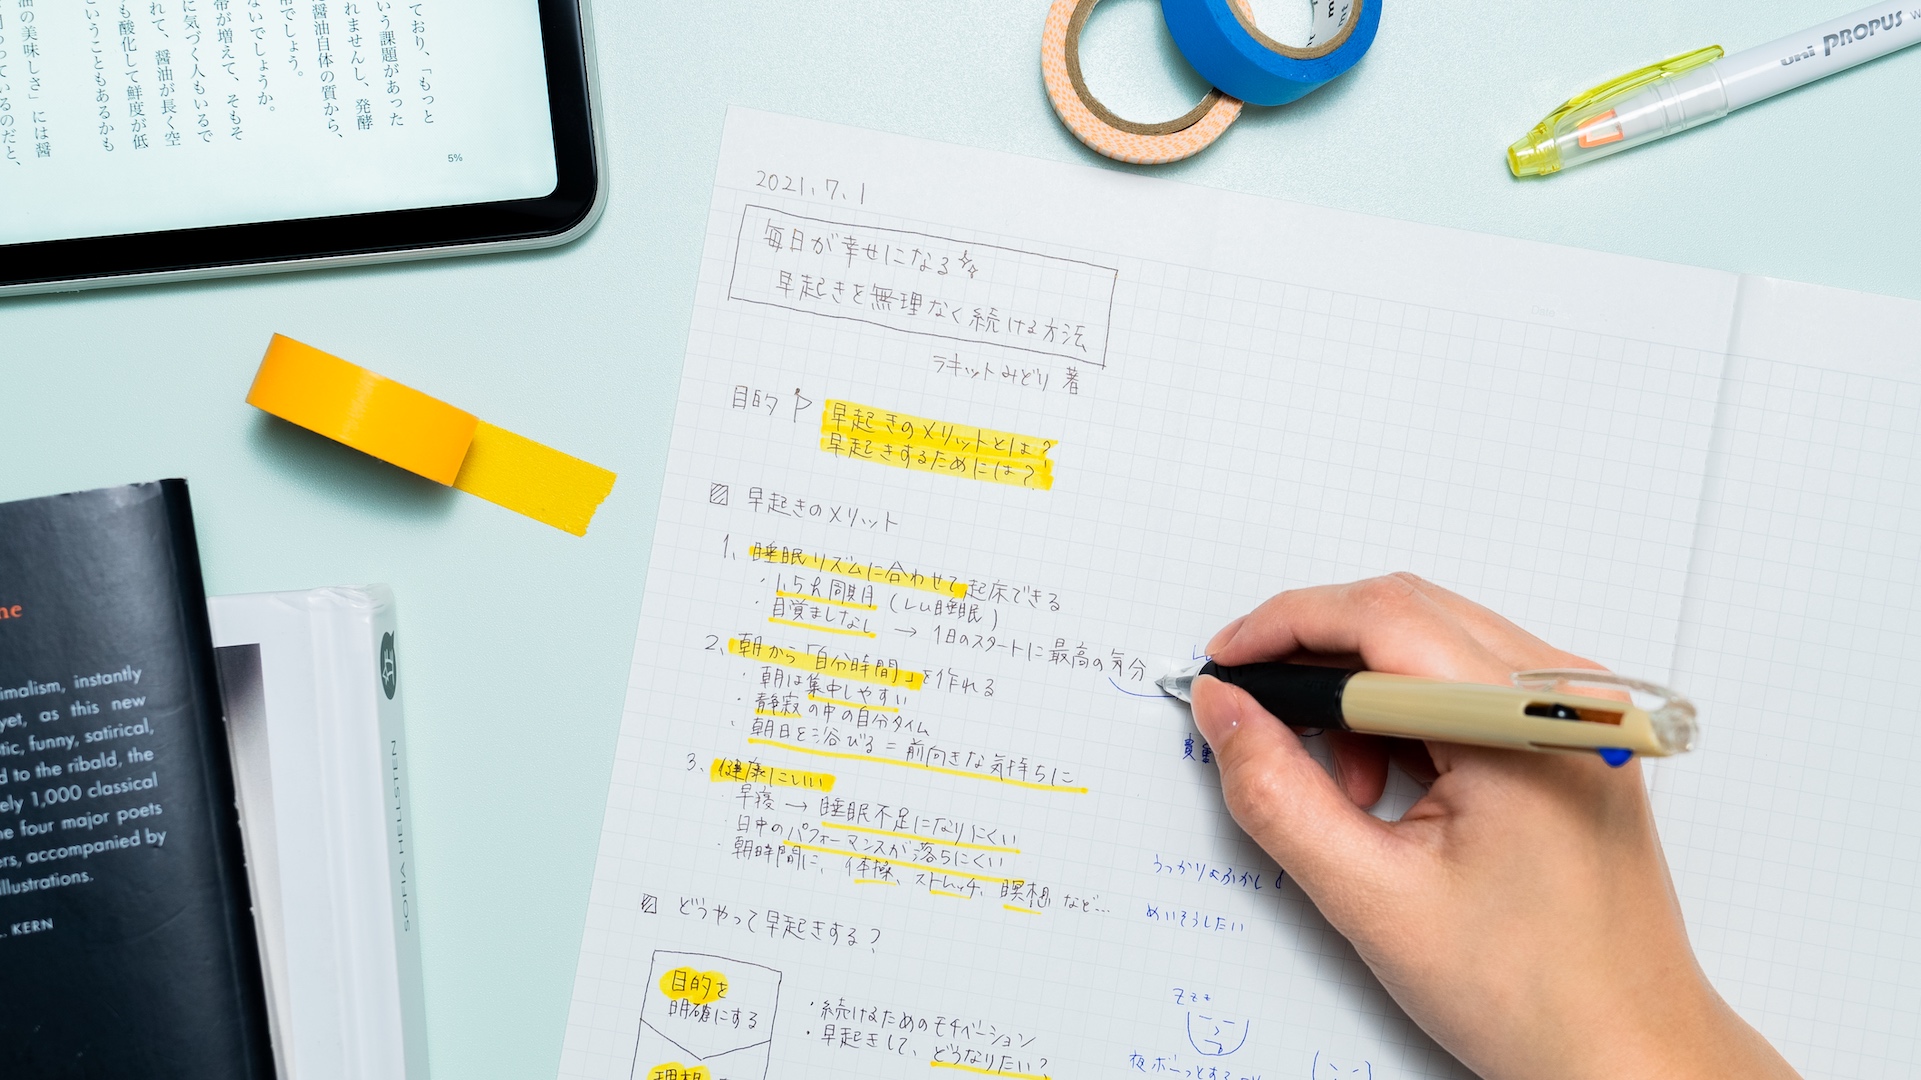 ており、「もっと
いう課題があった
れませんし、発酵
醤油自体の質から、
でしょう。
ないでしょうか。
帯が増えて、そもそ
に気づく人もいるで
れて、醤油が長く空
も酸化して鮮度が低
ということもあるかも
油の美味しさ」には醤
いるのだと、
5%
mt
uni PROPUS
2021.7.1
毎日が幸せになる
早起きを無理なく続ける方法
ラキットみどり 著
目的
早起きのメリットとは?
早起きするためには?
早起きのメリット
1、睡眠リズムに合わせて起床できる
・1.5h周期(レム睡眠)
・目覚ましなし → 1日のスタートに最高の気分
2、朝から「自分時間」を作れる
・朝は集中しやすい
・静寂の中の自分タイム
・朝日を浴びる=前向きな気持ちに
3、健康にいい
・早寝 → 睡眠不足になりにくい
・日中のパフォーマンスが落ちにくい
・朝時間に、体操、ストレッチ、瞑想 など...
どうやって早起きする?
目的を
明確にする
・続けるためのモチベーション
・早起きして、どうなりたい?
理想
うっかりよふかし
めいそうしたい
zzz
夜ボーっとする
ne
imalism, instantly
yet, as this new
tic, funny, satirical,
d to the ribald, the
ely 1,000 classical
he four major poets
ers, accompanied by
illustrations.
L. KERN
SOFIA HELLSTEN